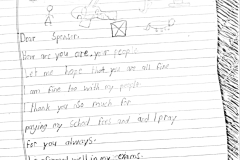 Dear Sponsor,
How are you and your people
Let me hope that you are all fine
I am fine too with my people.
I thank you so much for
paying my school fees and and I pray
for you always.
well in my exams.